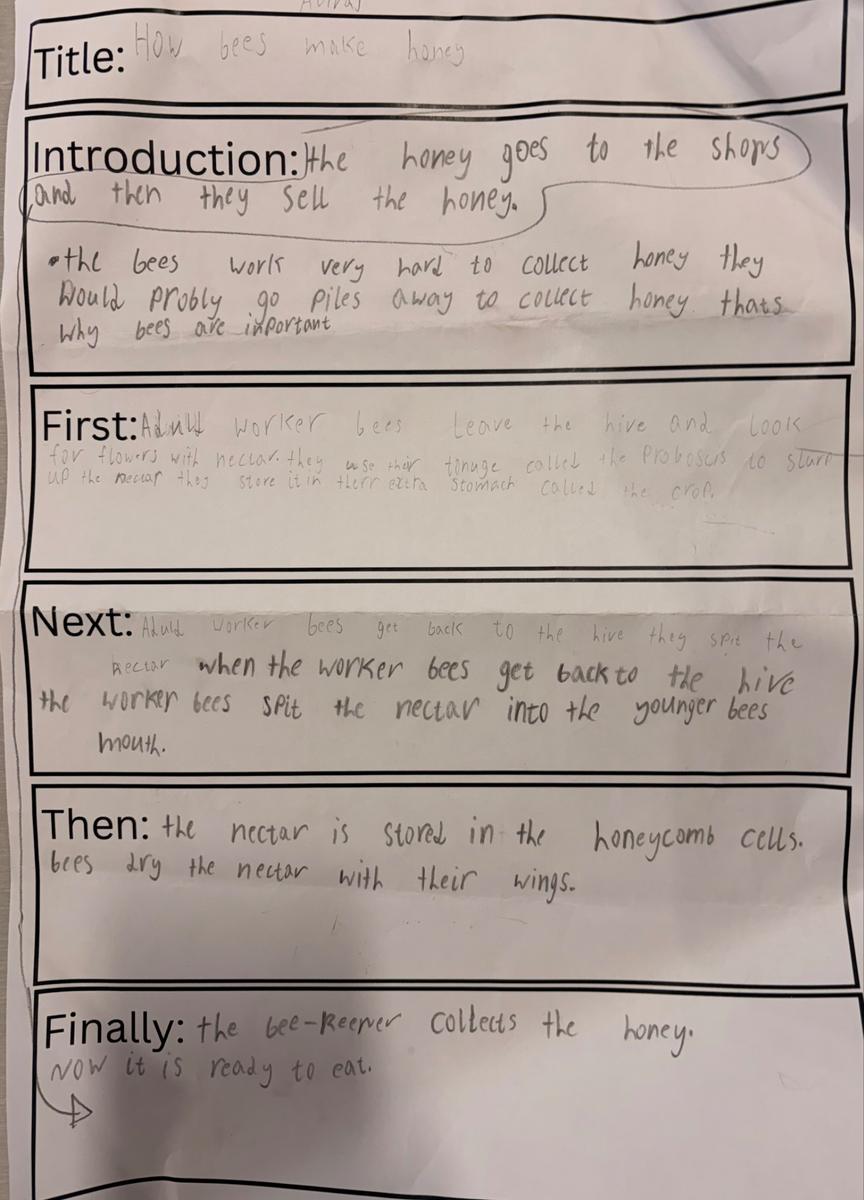 Title: How bees make honey
Introduction: the honey goes to the shops
and then they sell the honey.
•the bees work very hard to collect honey they
Would probly go piles away to collect honey thats
why bees are inportant
First: Aduld worker bees Leave the hive and look
for flowers with nectar. they use their tonuge called the Proboscis to slurp
up the nectar they store it in therr extra stomach called the crop.
Next: Aduld worker bees get back to the hive they spit the
nectar when the worker bees get back to the hive
the worker bees spit the nectar into the younger bees
mouth.
Then: the nectar is stored in the honeycomb cells.
bees dry the nectar with their wings.
Finally: the bee-keeper collects the honey.
NOW it is ready to eat.